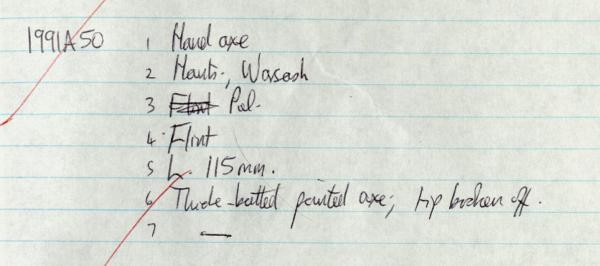 1991A50 1 Hand axe
2 Hants., Warsash
3 Flint Pal.
4. Flint
5 L. 115mm.
6 Thick-butted pointed axe; tip broken off.
7 —